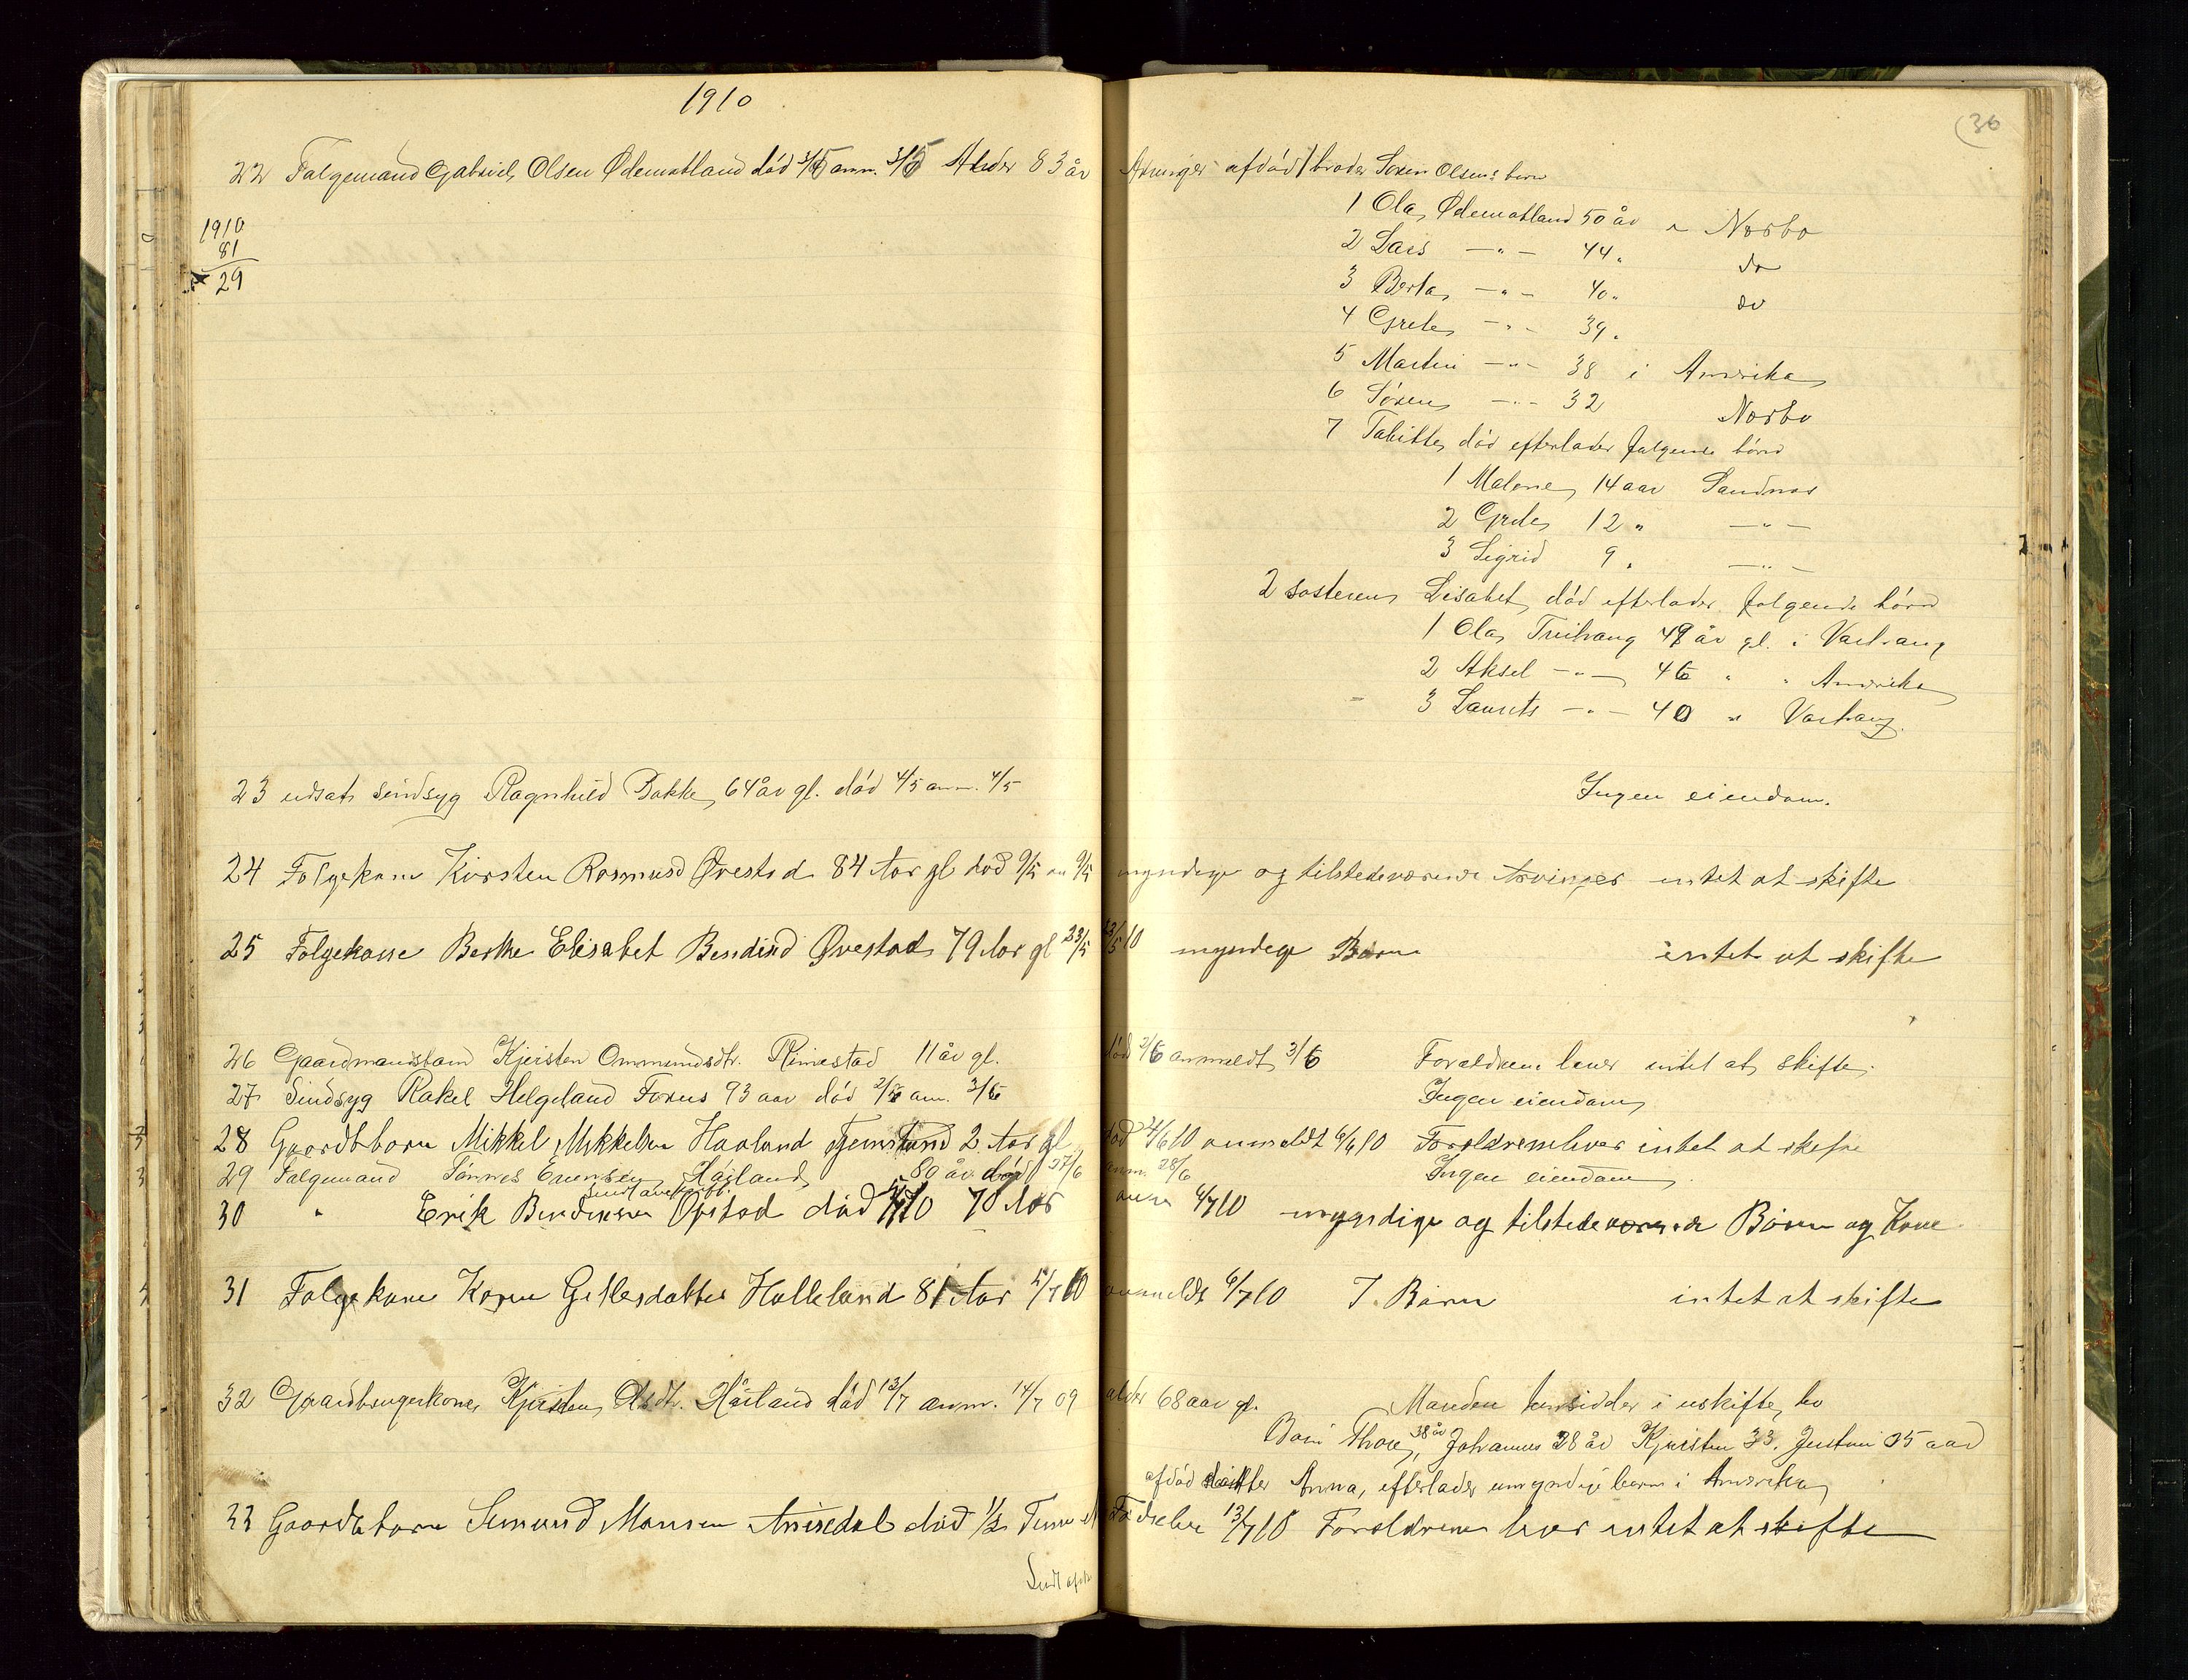 1910
(36
22 Følgemand Gabriel Olsen Ødemotland død 3/5 anm. 3/5 Alder 83 år Arvinger afdød 1 broder Sören Olsens born
1910
81
29
1 Ola Ödemotland 50 år i Nærbø
2 Lars —"— 44 " do
3 Berta —"— 40 " do
4 Grete —"— 39 "
5 Martin —"— 38 i Amerika
6 Sören —"— 32 Nærbø
7 Tabitte död efterlader følgende börn
1 Malene 14 aar Sandnes
2 Grete 12 " —"—
3 Sigrid 9 " —"—
2 sosteren Lisabet död efterlader følgende börn
1 Ola Tvihaug 49 år gl. i Varhaug
2 Aksel —"— 46 " " Amerika
3 Laurits —"— 40 " Varhaug.
23 udsat sindsyg Ragnhild Bakke, 64 år gl. död 4/5 anm. 4/5 Ingen eiendom.
24 Folgekone Kirsten Rasmusd Øvestad 84 Aar gl död 9/5 an 9/5 myndige og tilstedeværende Arvinger intet at skifte
25 Folgekone Berthe Elisabet Bendixd Øvestad 79 Aar gl 23/5 23/5 10 myndige Børn intet at skifte
26 Gaardmandsbarn Kjersten Ommundsdtr. Rimestad 11 år gl. död 2/6 anmeldt 3/6 Forældrene lever intet at skifte.
27 Sindsyg Rakel Helgeland Fuus 93 aar död 2/6 am. 3/6 Ingen eiendom
28 Gaardbbarn Mikkel Mikkelsen Haaland 2 Aar gl död 4/6 10 anmeldt 6/6 10 Forældrene lever intet at skifte
29 Følgemand Håland 80 år död 27/6 anm. 28/6 Ingen eiendom.
30 " Erik Bendiksen Opstad död 4/7 10 70 Aar anm 6/7 10 myndige og tilstedeværende Börn og Kone
31 Folgekone Karen Gitlesdatter Holleland 81 Aar 5/7 10 anmeldt 6/7 10 7 Børn intet at skifte
32 Gaardbrugerkone Kjersten Olsdtr. Håland död 13/7 anm. 14/7 09 alder 68 aar gl. Manden hensidder i uskifte bo
Barn Thore 38 år, Johannes 28 år Kjersten 33. Justine 25 aar
afdød datter Anna, efterlader umyndige barn i Amerika
33 Gaardbbarn Simund Monsen Årrisdal död 1/2 Time el Fødselen 13/7 10 Forældrene lever intet at skifte